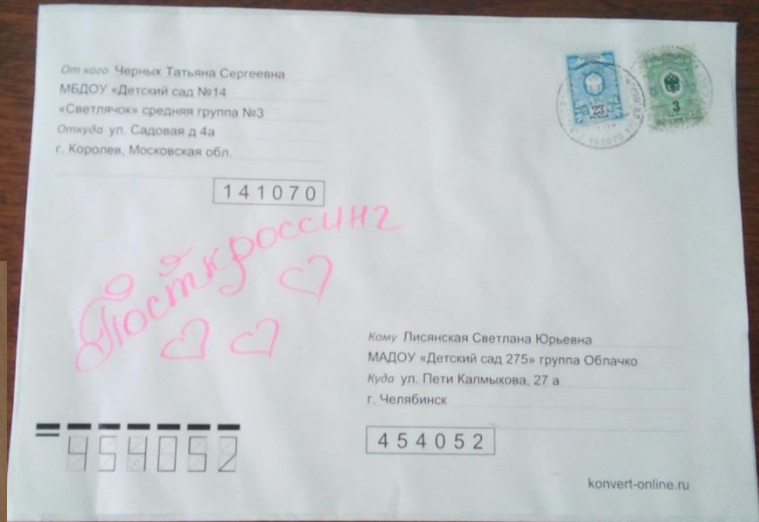 От кого Черных Татьяна Сергеевна
МБДОУ «Детский сад №14
«Светлячок» средняя группа №3
Откуда ул. Садовая д 4а
г. Королев, Московская обл.
141070
23
3
Посткроссинг
Кому Лисянская Светлана Юрьевна
МАДОУ «Детский сад 275» группа Облачко
Куда ул. Пети Калмыкова, 27 а
г. Челябинск
454052
454052
konvert-online.ru